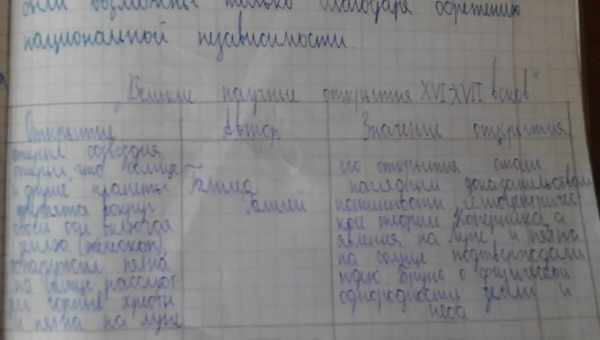 были возможны только благодаря обретению
национальной независимости.
"Великие научные открытия XVI-XVII веков"
Открытие Автор Значение открытия
открыл созвездия,
открыл, что солнце
и другие планеты
вертятся вокруг
своей оси включая
землю
обнаружил пятна
на солнце рассмот
рел горные хребты
и пятна на луне
Галилео
Галилей
его открытия стали
наглядным доказательством
истинности гелиоцентричес
кой теории Коперника, а
явления на луне, и пятна
на солнце подтверждали
идею Бруно о физической
однородности земли и
неба